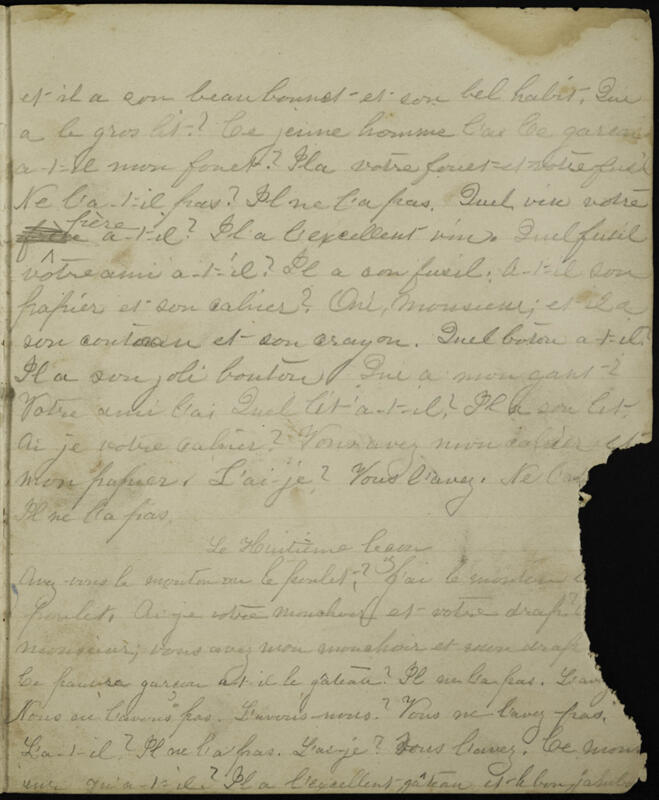 et il a son beau bonnet et son bel habit. Que
a le gros lit? Ce jeune homme l'a. Ce garçon
a-t-il mon fouet? Il a votre fouet et votre fusil
Ne l'a-t-il pas? Il ne l'a pas. Quel vin votre
frère a-t-il? Il a l'excellent vin. Quel fusil
vôtre ami a-t-il? Il a son fusil. A-t-il son
papier et son cahier? Oui, monsieur; et il a
son couteau et son crayon. Quel bâton a-t-il?
Il a son joli boutôn. Que a mon gant?
Votre ami l'a. Quel lit a-t-il? Il a son lit.
Ai je votre cahier? Vous avez mon cahier et
mon papier. L'ai-je? Vous l'avez. Ne l'a
Il ne l'a pas.
Le Huitième leçon
Avez-vous le mouton ou le poulet? J'ai le mouton
poulet. Ai-je votre mouchoir et votre drap?
monsieur; vous avez mon mouchoir et mon drap
Ce pauvre garçon a-t-il le gâteau? Il ne l'a pas. L'av
Nous ne l'avons pas. L'avons-nous? Vous ne l'avez pas.
L'a-t-il? Il ne l'a pas. L'ai-je? Vous l'avez. Ce mon
qu'a-t-il? Il a l'excellent gâteau et le bon jambo